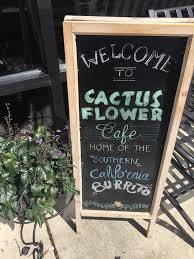 WELCOME
TO
CACTUS
FLOWER
Cafe
HOME OF THE
SOUTHERN
California
BURRITO